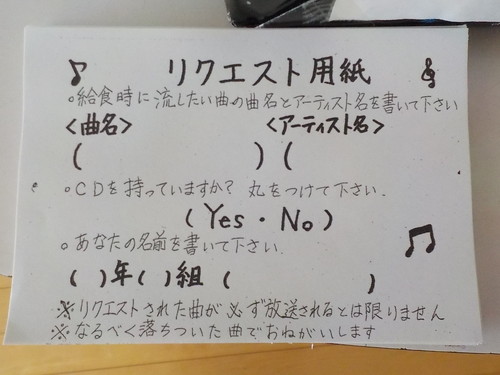 ♪ リクエスト用紙
○給食時に流したい曲の曲名とアーティスト名を書いて下さい
<曲名> <アーティスト名>
( ) (
○CDを持っていますか? 丸をつけて下さい.
(Yes・No)
○あなたの名前を書いて下さい.
( )年( )組 ( )
※リクエストされた曲が必ず放送されるとは限りません
※なるべく落ちついた曲でおねがいします